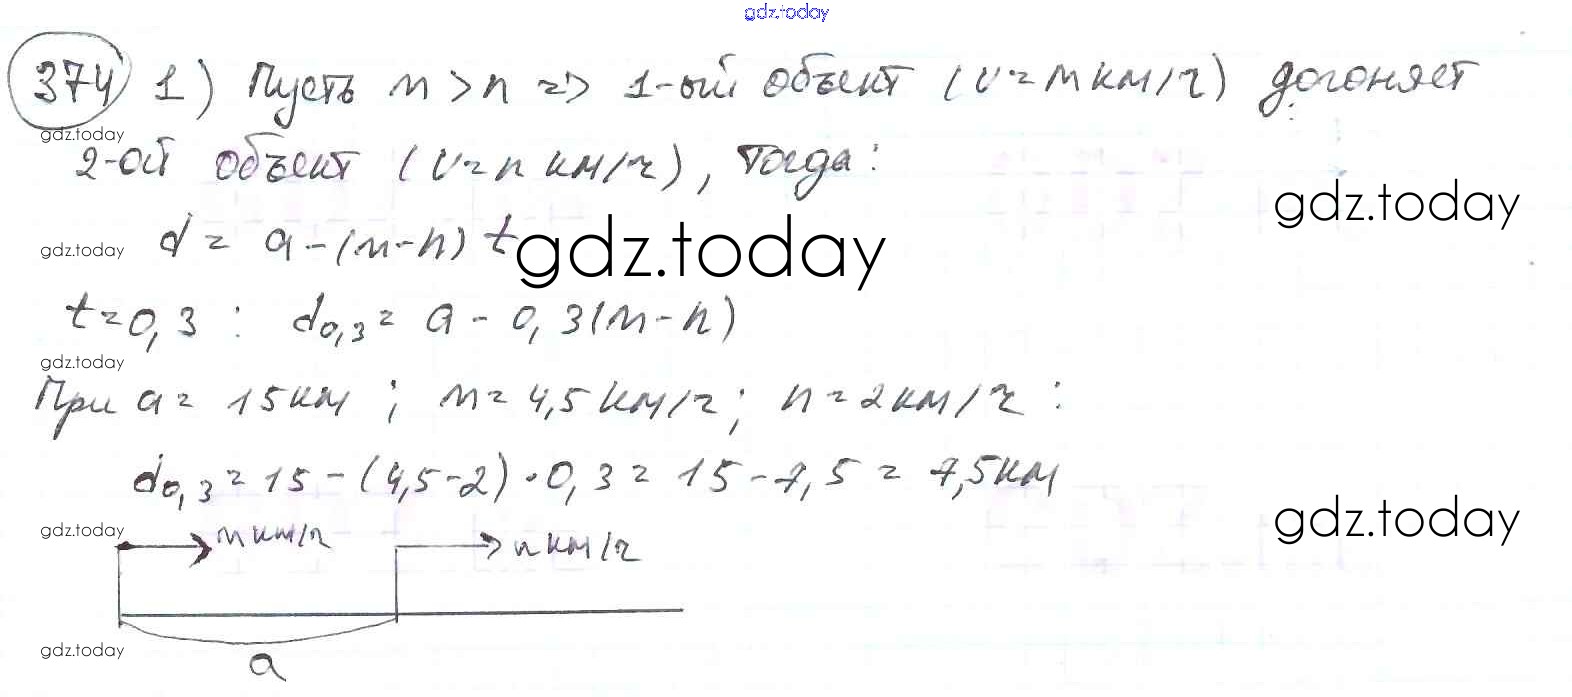 gdz.today
374 1) Пусть m > n => 1-ый объект (v = m км/ч) догоняет
gdz.today
2-ой объект (v = n км/ч), тогда:
gdz.today
gdz.today d = a - (m - n) t gdz.today
t = 0,3 : d0,3 = a - 0,3(m - n)
gdz.today
При a = 15 км ; m = 4,5 км/ч ; n = 2 км/ч :
d0,3 = 15 - (4,5 - 2) · 0,3 = 15 - 7,5 = 7,5 км
gdz.today
gdz.today m км/ч n км/ч
gdz.today
a